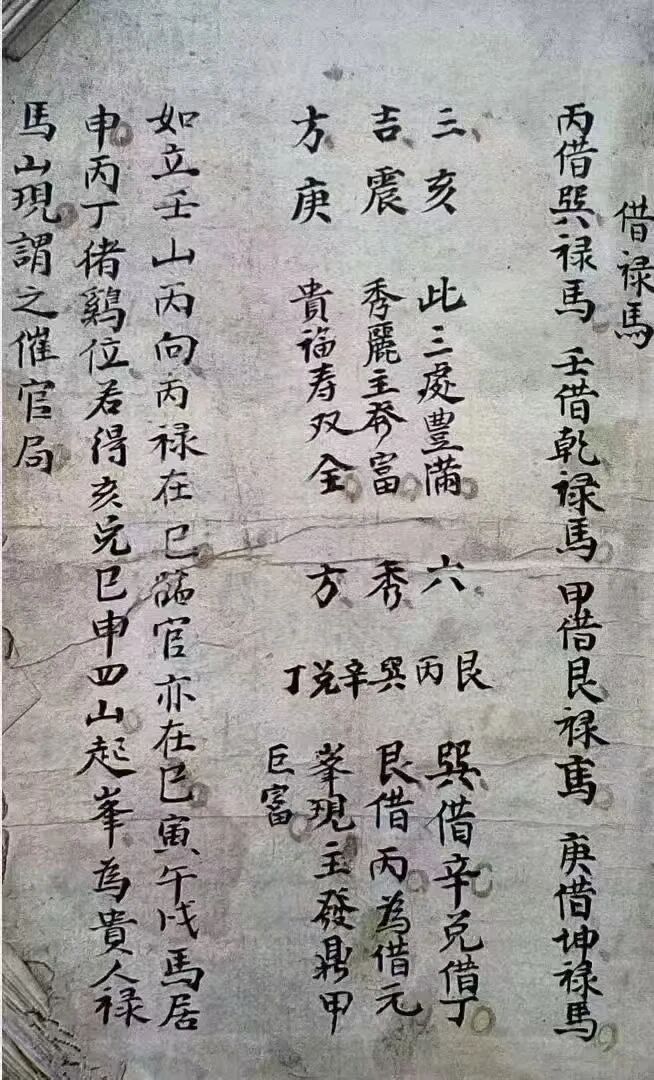 借禄馬
丙借巽禄馬 壬借乾禄馬 甲借艮禄馬 庚借坤禄馬
三吉方
亥震庚
此三處豐满
秀麗主發富
貴福寿双全
六秀方
艮丙巽辛兑丁
巽借辛兑借丁
艮借丙為借元
峯現主發鼎甲
巨富
如立壬山丙向丙禄在巳官亦在巳寅午戌馬居
申丙丁猪鷄位若得亥兑巳申四山起峯為貴人禄
馬山現謂之催官局